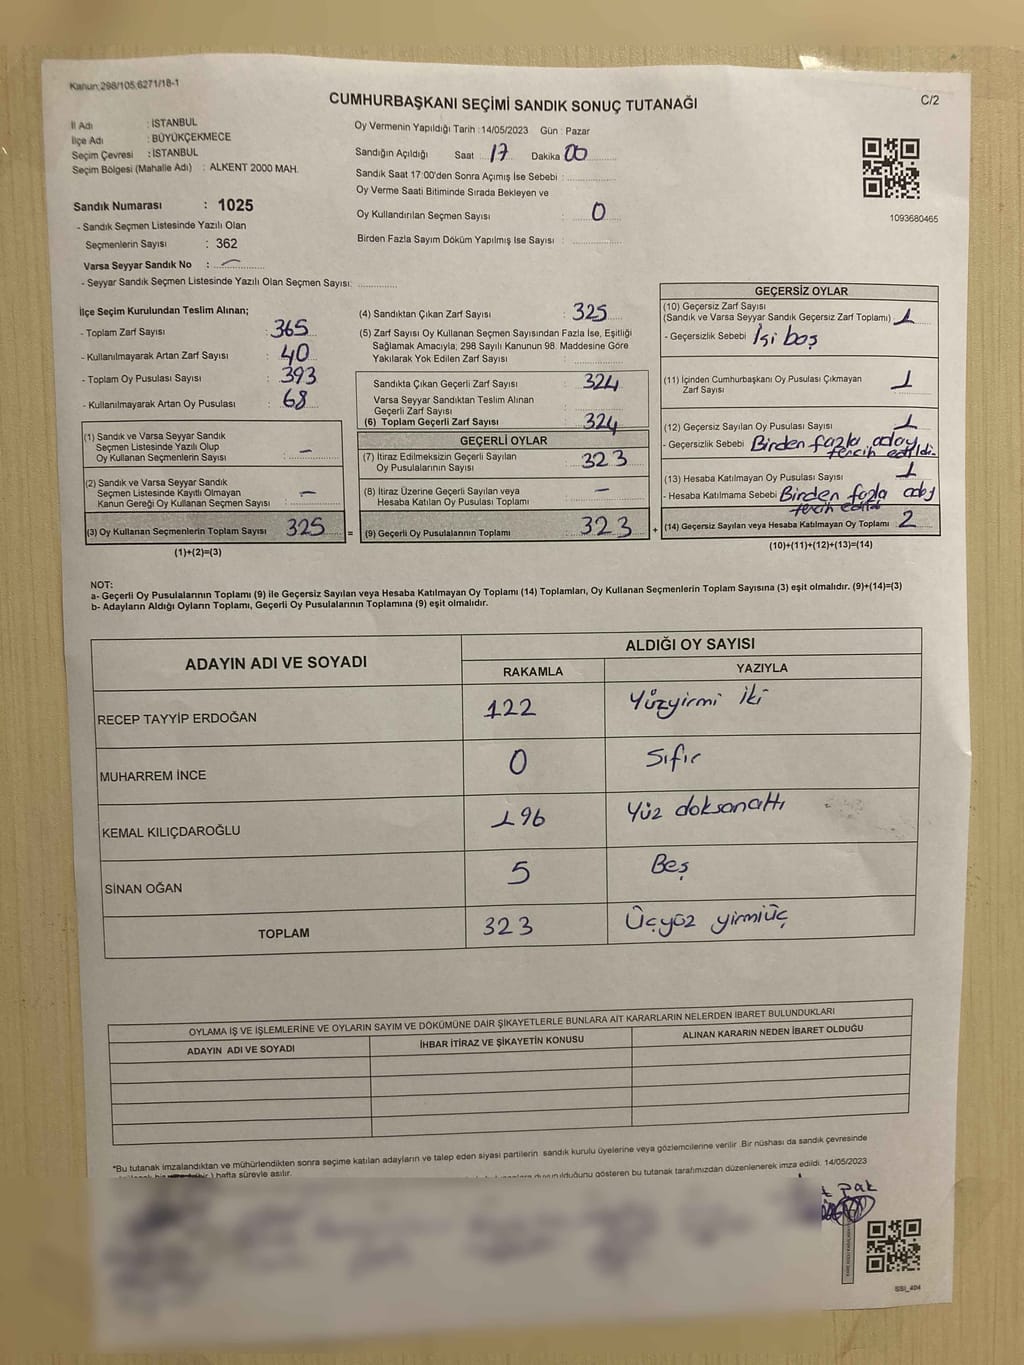 Kanun:298/105;6271/18-1
CUMHURBAŞKANI SEÇİMİ SANDIK SONUÇ TUTANAĞI
C/2
İl Adı : İSTANBUL
İlçe Adı : BÜYÜKÇEKMECE
Seçim Çevresi : İSTANBUL
Seçim Bölgesi (Mahalle Adı) : ALKENT 2000 MAH.
Oy Vermenin Yapıldığı Tarih : 14/05/2023 Gün : Pazar
Sandığın Açıldığı Saat : 17 Dakika 00
Sandık Saat 17:00'den Sonra Açımış İse Sebebi :
Oy Verme Saati Bitiminde Sırada Bekleyen ve
Oy Kullandırılan Seçmen Sayısı : 0
Birden Fazla Sayım Döküm Yapılmış İse Sayısı :
1093680465
Sandık Numarası : 1025
- Sandık Seçmen Listesinde Yazılı Olan
Seçmenlerin Sayısı : 362
Varsa Seyyar Sandık No : –
- Seyyar Sandık Seçmen Listesinde Yazılı Olan Seçmen Sayısı:
İlçe Seçim Kurulundan Teslim Alınan;
- Toplam Zarf Sayısı : 365
- Kullanılmayarak Artan Zarf Sayısı : 40
- Toplam Oy Pusulası Sayısı : 393
- Kullanılmayarak Artan Oy Pusulası : 68
(1) Sandık ve Varsa Seyyar Sandık
Seçmen Listesinde Yazılı Olup
Oy Kullanan Seçmenlerin Sayısı : –
(2) Sandık ve Varsa Seyyar Sandık
Seçmen Listesinde Kayıtlı Olmayan
Kanun Gereği Oy Kullanan Seçmen Sayısı : –
(3) Oy Kullanan Seçmenlerin Toplam Sayısı 325 =
(1)+(2)=(3)
(4) Sandıktan Çıkan Zarf Sayısı : 325
(5) Zarf Sayısı Oy Kullanan Seçmen Sayısından Fazla İse, Eşitliği
Sağlamak Amacıyla; 298 Sayılı Kanunun 98. Maddesine Göre
Yakılarak Yok Edilen Zarf Sayısı :
Sandıkta Çıkan Geçerli Zarf Sayısı : 324
Varsa Seyyar Sandıktan Teslim Alınan
Geçerli Zarf Sayısı :
(6) Toplam Geçerli Zarf Sayısı : 324
GEÇERLİ OYLAR
(7) İtiraz Edilmeksizin Geçerli Sayılan
Oy Pusulalarının Sayısı : 323
(8) İtiraz Üzerine Geçerli Sayılan veya
Hesaba Katılan Oy Pusulası Toplamı : –
(9) Geçerli Oy Pusulalarının Toplamı 323 +
GEÇERSİZ OYLAR
(10) Geçersiz Zarf Sayısı
(Sandık ve Varsa Seyyar Sandık Geçersiz Zarf Toplamı) : 1
- Geçersizlik Sebebi : İçi boş
(11) İçinden Cumhurbaşkanı Oy Pusulası Çıkmayan
Zarf Sayısı : 1
(12) Geçersiz Sayılan Oy Pusulası Sayısı : 1
- Geçersizlik Sebebi : Birden fazla aday
tercih edildi.
(13) Hesaba Katılmayan Oy Pusulası Sayısı : 1
- Hesaba Katılmama Sebebi : Birden fazla aday
tercih edildi
(14) Geçersiz Sayılan veya Hesaba Katılmayan Oy Toplamı 2
(10)+(11)+(12)+(13)=(14)
NOT:
a- Geçerli Oy Pusulalarının Toplamı (9) ile Geçersiz Sayılan veya Hesaba Katılmayan Oy Toplamı (14) Toplamları, Oy Kullanan Seçmenlerin Toplam Sayısına (3) eşit olmalıdır. (9)+(14)=(3)
b- Adayların Aldığı Oyların Toplamı, Geçerli Oy Pusulalarının Toplamına (9) eşit olmalıdır.
ADAYIN ADI VE SOYADI
ALDIĞI OY SAYISI
RAKAMLA YAZIYLA
RECEP TAYYİP ERDOĞAN 122 Yüzyirmi iki
MUHARREM İNCE 0 Sıfır
KEMAL KILIÇDAROĞLU 196 Yüz doksanaltı
SİNAN OĞAN 5 Beş
TOPLAM 323 Üçyüz yirmiüç
OYLAMA İŞ VE İŞLEMLERİNE VE OYLARIN SAYIM VE DÖKÜMÜNE DAİR ŞİKAYETLERLE BUNLARA AİT KARARLARIN NELERDEN İBARET BULUNDUKLARI
ADAYIN ADI VE SOYADI İHBAR İTİRAZ VE ŞİKAYETİN KONUSU ALINAN KARARIN NEDEN İBARET OLDUĞU
*Bu tutanak imzalandıktan ve mühürlendikten sonra seçime katılan adayların ve talep eden siyasi partilerin sandık kurulu üyelerine veya gözlemcilerine verilir. Bir nüshası da sandık çevresinde
hafta süreyle asılır. olduğunu gösteren bu tutanak tarafımızdan düzenlenerek imza edildi. 14/05/2023
SSI_404